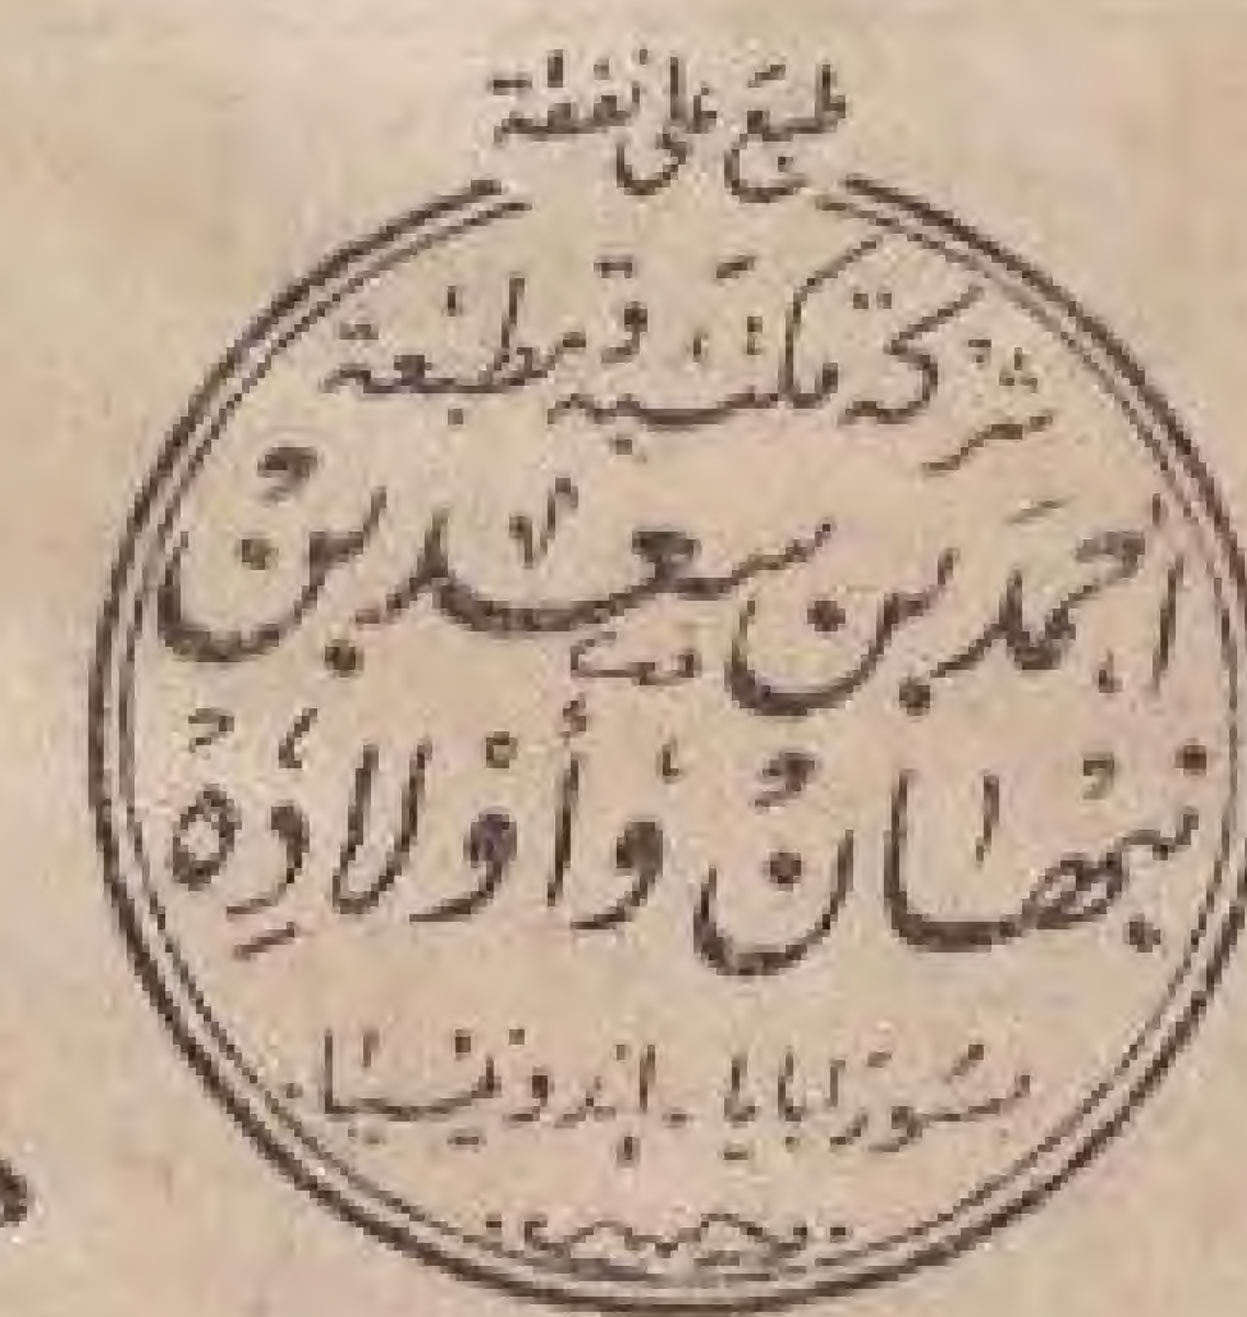 طبع على نفقة
شركة مكتبة ومطبعة
احمد بن سعد بن
نبهان وأولاده
سورابايا - إندونيسيا